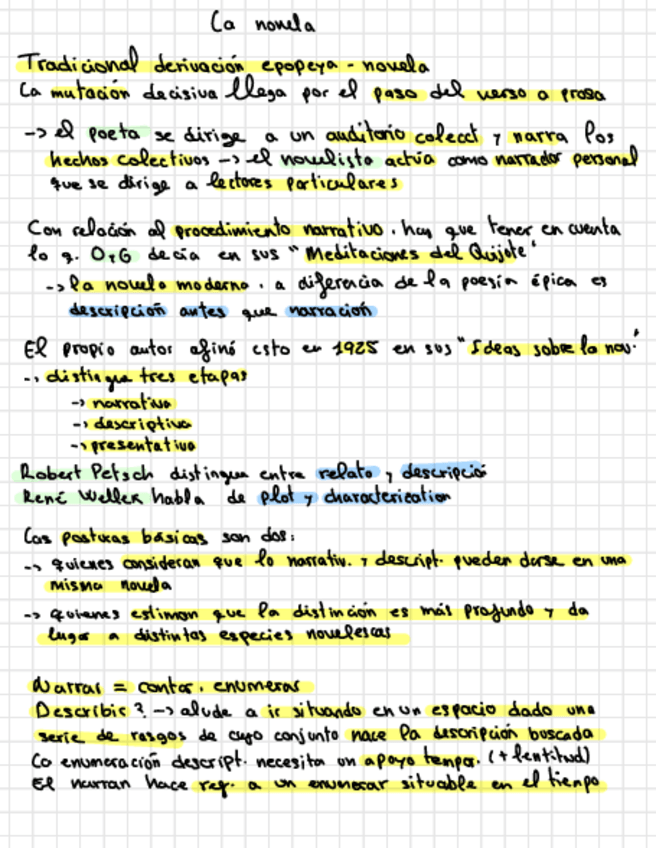 La novela
Tradicional derivación epopeya - novela
La mutación decisiva llega por el paso del verso a prosa
-> el poeta se dirige a un auditorio colect y narra los
hechos colectivos -> el novelista actúa como narrador personal
que se dirige a lectores particulares
Con relación al procedimiento narrativo, hay que tener en cuenta
lo q. O.yG decía en sus "Meditaciones del Quijote"
-> la novela moderna, a diferencia de la poesía épica es
descripción antes que narración
El propio autor afinó esto en 1925 en sus "Ideas sobre la nov."
-> distingue tres etapas
-> narrativa
-> descriptiva
-> presentativa
Robert Petsch distingue entre relato y descripció
René Wellek habla de plot y characterication
Las posturas básicas son dos:
-> quienes consideran que lo narrativ. y descript. pueden darse en una
misma novela
-> quienes estiman que la distinción es más profundo y da
lugar a distintas especies novelescas
Narrar = contar, enumerar
Describir? -> alude a ir situando en un espacio dado una
serie de rasgos de cuyo conjunto nace la descripción buscada
La enumeración descript. necesita un apoyo tempor. (+ lentitud)
El narrar hace ref. a un enumerar situable en el tiempo